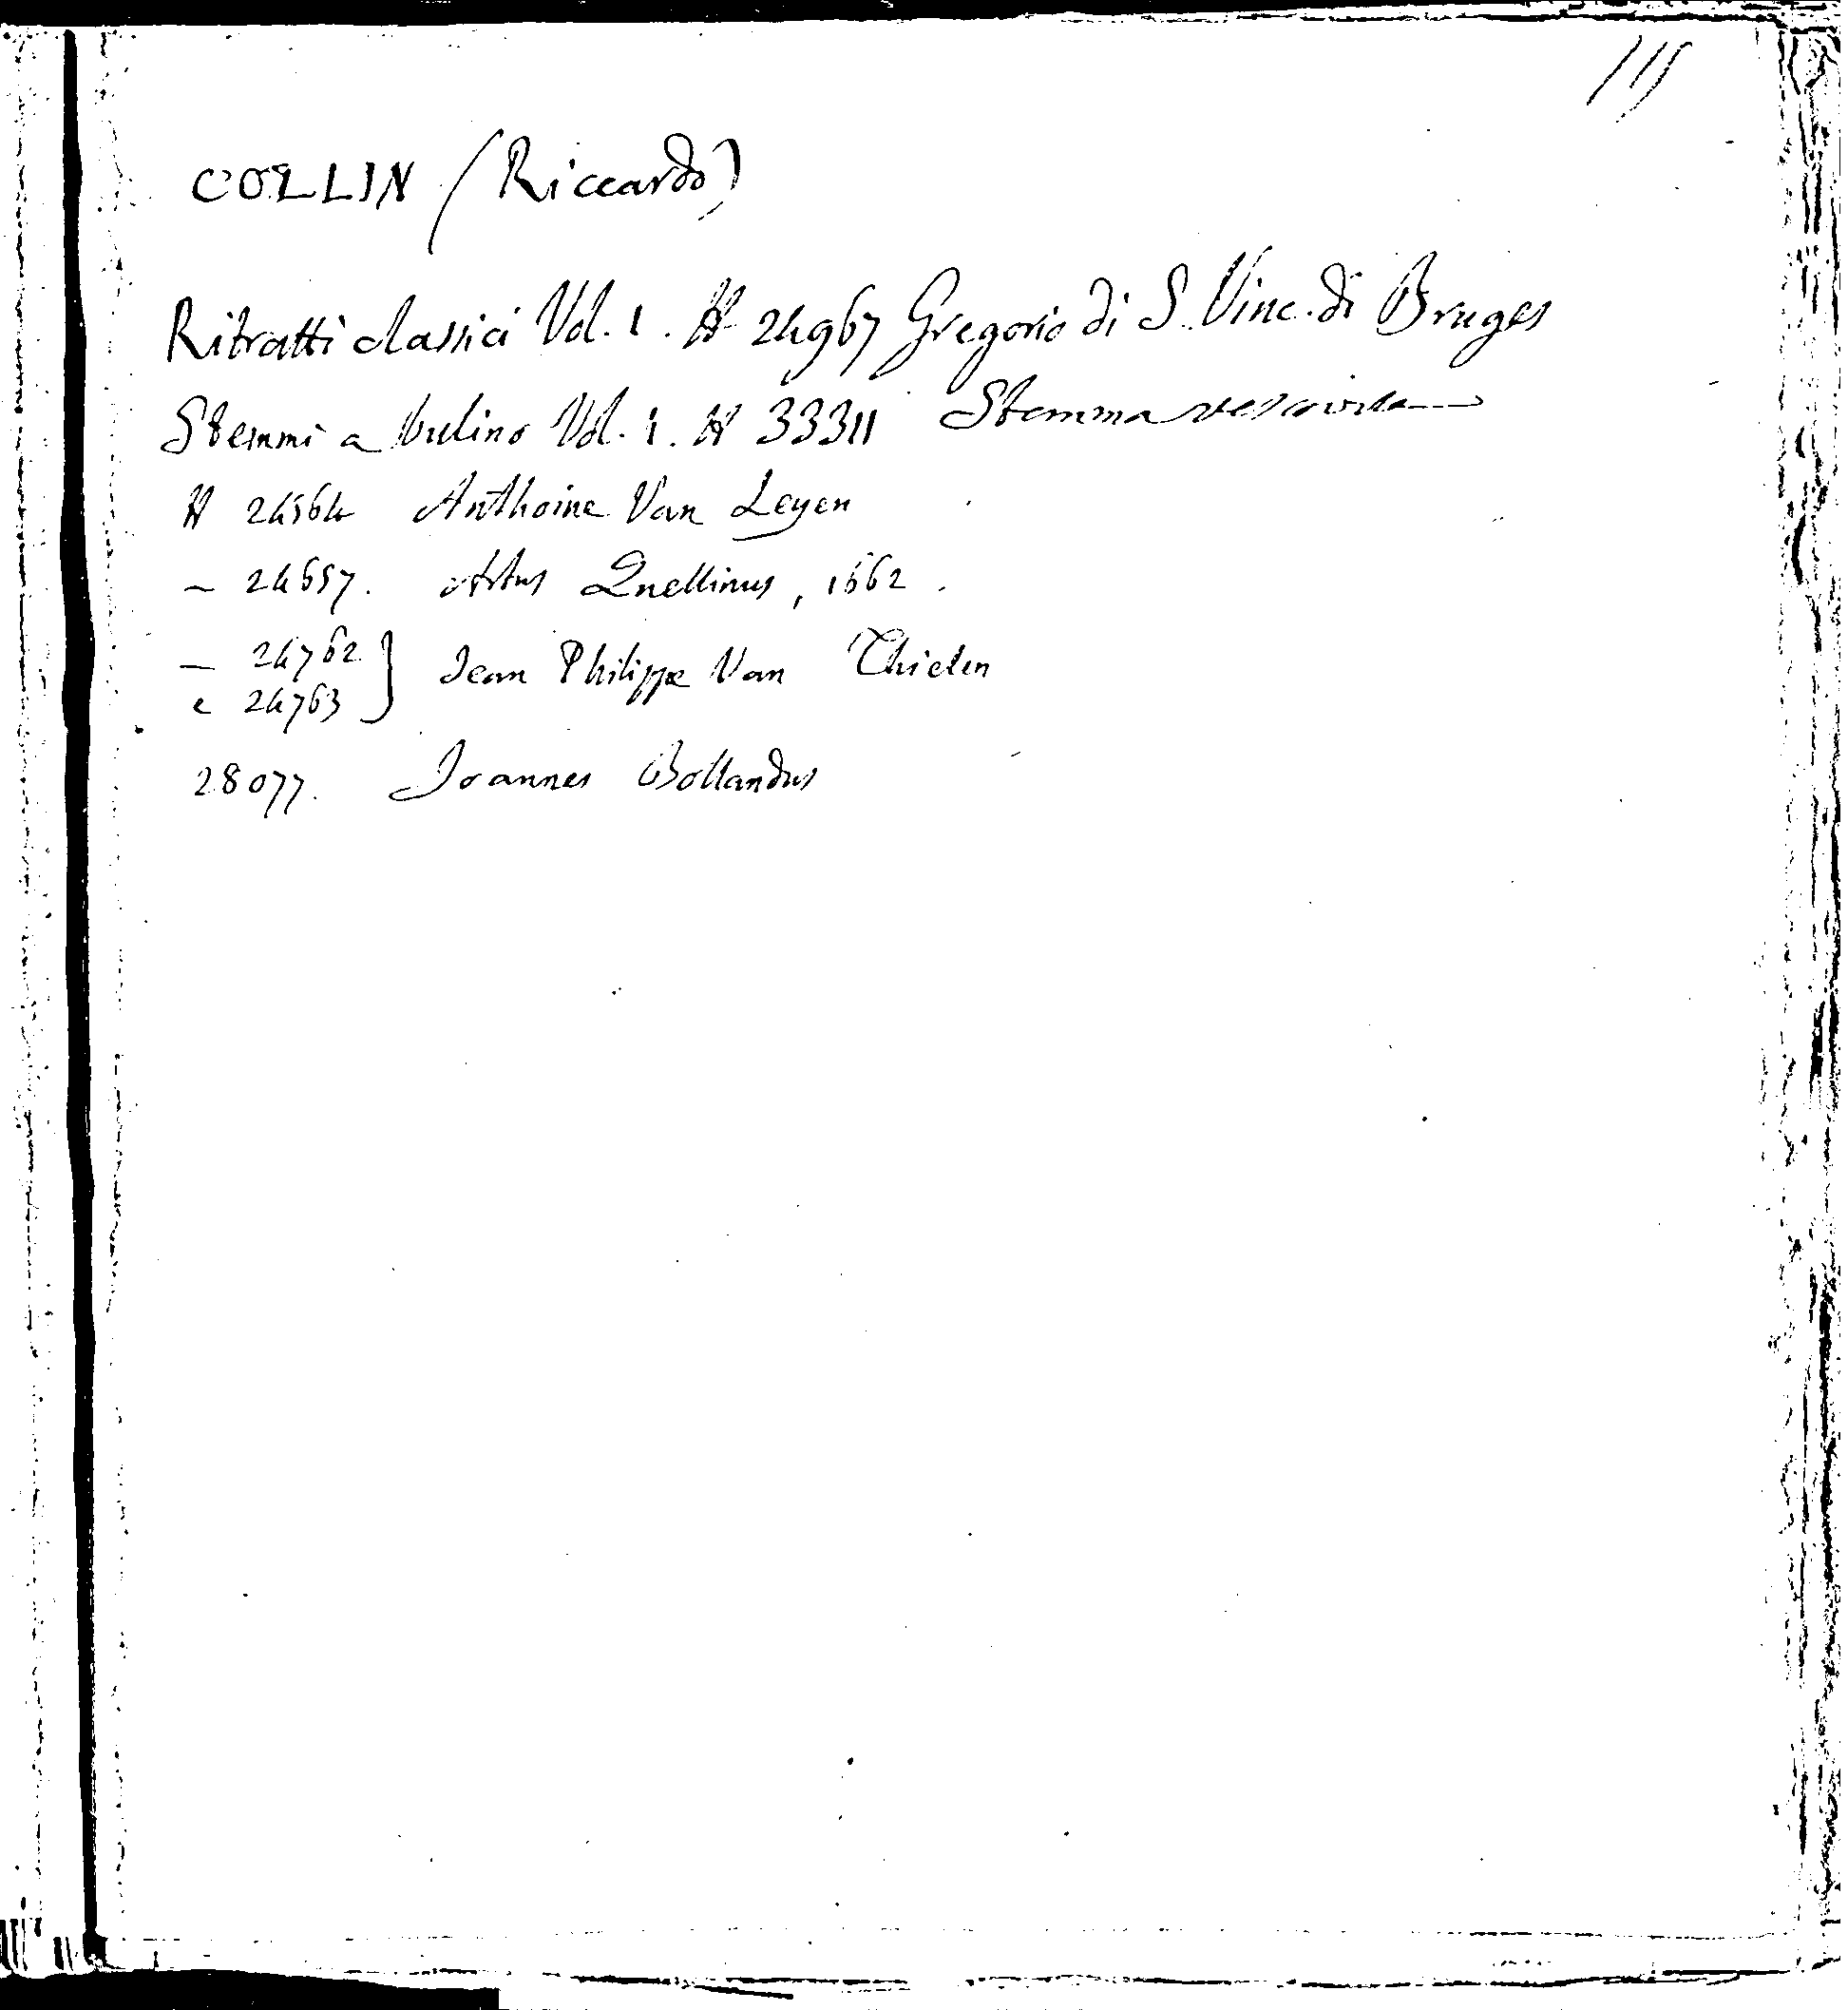 115
COLLIN (Riccardo)
Ritratti classici Vol. 1. H 24967 Gregorio di S. Vinc. di Bruges
Stemmi a bulino Vol. 1. H 33311 Stemma vescovile
H 24564 Anthoine Van Leyen
— 24657. Artus Quellinus, 1662.
— 24762 } Jean Philippe Van Thielen
e 24763
28077. Joannes Bollandus